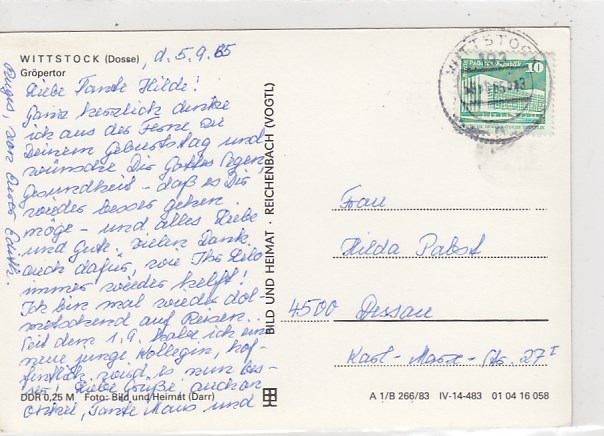 WITTSTOCK (Dosse)
Gröpertor
, d. 5.9.85
Liebe Tante Hilde!
Ganz herzlich denke
ich aus der Ferne an
Deinem Geburtstag und
wünsche Dir Gottes Segen,
Gesundheit - daß es Dir
wieder besser gehen
möge - und alles Liebe
und Gute. Vielen Dank
auch dafür, wie Ihr
immer wieder helft!
Ich bin mal wieder dol-
metschend auf Reisen.
Seit dem 1.9. habe ich eine
neue junge Kollegin, hof-
fentlich wird es nun bes-
ser! Liebe Grüße, auch an
Onkel, Tante Maus und
von Eurer Edith.
DDR 0,25 M Foto: Bild und Heimat (Darr)
BILD UND HEIMAT · REICHENBACH (VOGTL)
WITTSTOCK
10
Frau
Hilda Pabst
4500 Dessau
Karl-Marx-Str. 27 I
A 1/B 266/83 IV-14-483 01 04 16 058